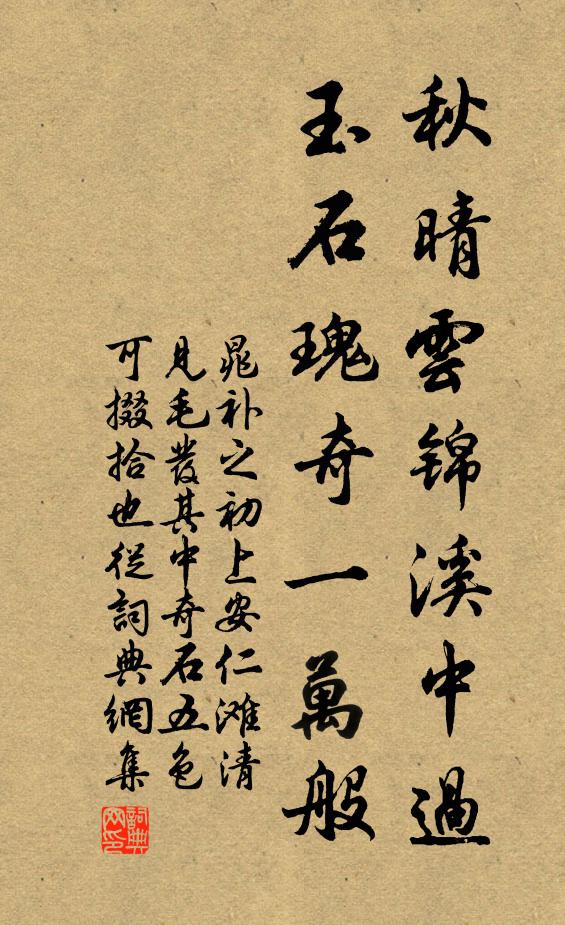 秋晴雲錦溪中過
玉石瑰奇一萬般
晁补之初上安仁滩清
見毛发其中奇石五色
可掇拾也從詞典網集
詞典網印